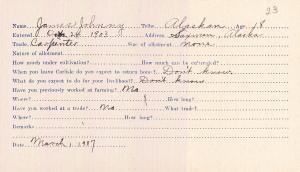 23
Name, James Johnny Tribe, Alaskan No. 18.
Entered, Oct 24 1903 Address, Alaska
Trade, Carpenter Size of allotment none
Nature of allotment
How much under cultivation? How much can be extended?
When you leave Carlisle do you expect to return home? Don't know
What do you expect to do for your livelihood? Don't know
Have you previously worked at farming? No
Where? How long?
Have you worked at a trade? No What trade?
Where? How long?
Remarks
Date, March 1, 1907